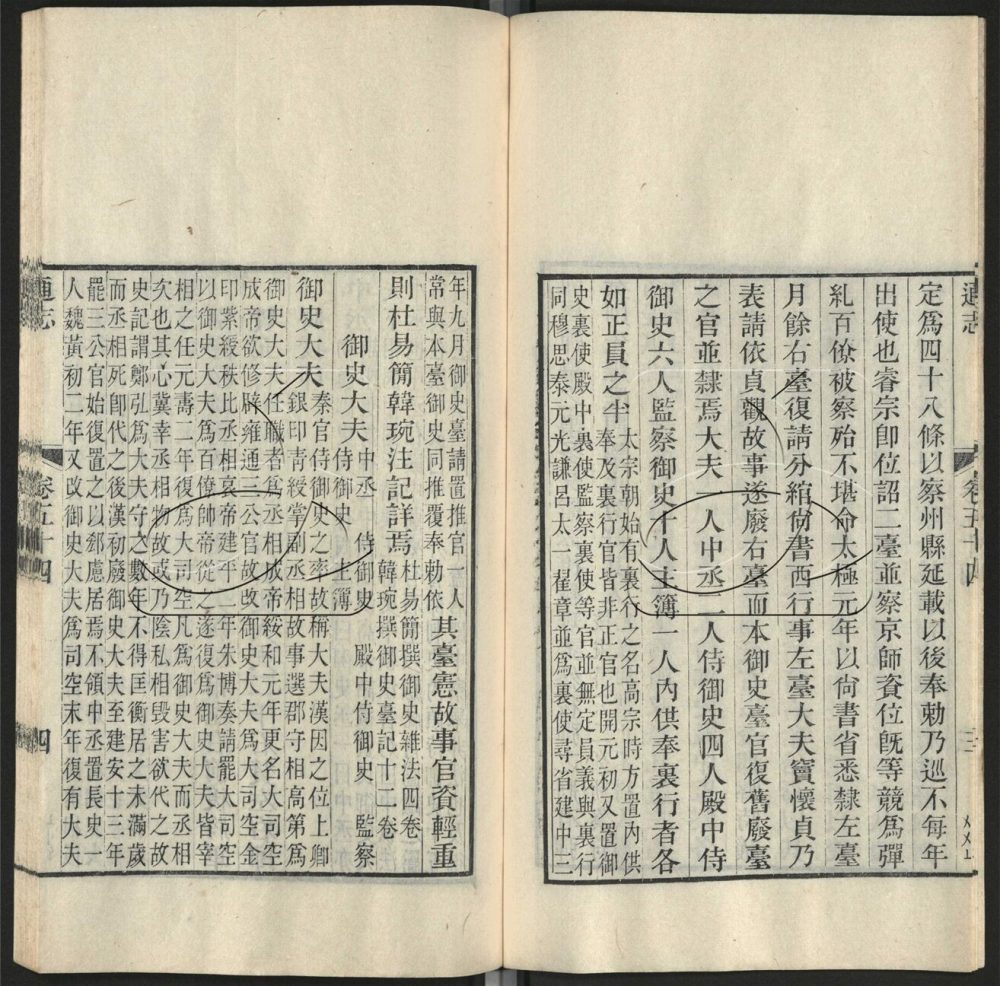 通志
卷五十四
三
定爲四十八條以察州縣延載以後奉勅乃巡不每年
出使也睿宗卽位詔二臺並察京師資位旣等競爲彈
糺百僚被察殆不堪命太極元年以尙書省悉隸左臺
月餘右臺復請分綰尙書西行事左臺大夫竇懷貞乃
表請依貞觀故事遂廢右臺而本御史臺官復舊廢臺
之官並隸焉大夫一人中丞二人侍御史四人殿中侍
御史六人監察御史十人主簿一人內供奉裏行者各
如正員之半
太宗朝始有裏行之名高宗時方置內供
奉及裏行官皆非正官也開元初又置御
史裏使殿中裏使監察裏使等官並無定員義與裏行
同穆思泰元光謙呂太一翟章並爲裏使尋省建中三
年九月御史臺請置推官一人
常與本臺御史同推覆奉勅依
其臺憲故事官資輕重
則杜易簡韓琬注記詳焉
杜易簡撰御史雜法四卷
韓琬撰御史臺記十二卷
御史大夫
中丞
侍御史
殿中侍御史
監察
侍御史
主簿
御史大夫
秦官侍御史之率故稱大夫漢因之位上卿
銀印青綬掌副丞相故事選郡守相高第爲
御史大夫任職者爲丞相成帝綏和元年更名大司空
成帝欲修辟雍通三公官故改御史大夫爲大司空金
印紫綬秩比丞相哀帝建平二年朱博奏請罷大司空
以御史大夫爲百僚帥帝從之遂復爲御史大夫皆宰
相之任元壽二年復爲大司空凡爲御史大夫而丞相
次也其心冀幸丞相物故或乃陰私相毀害欲代之故
史記謂鄭弘爲大夫守之數年不得匡衡居之未滿歲
而丞相死卽代之後漢初廢御史大夫至建安十三年
罷三公官始復置之以郄慮居焉不領中丞置長史一
人魏黃初二年又改御史大夫爲司空末年復有大夫
通志
卷五十四
四